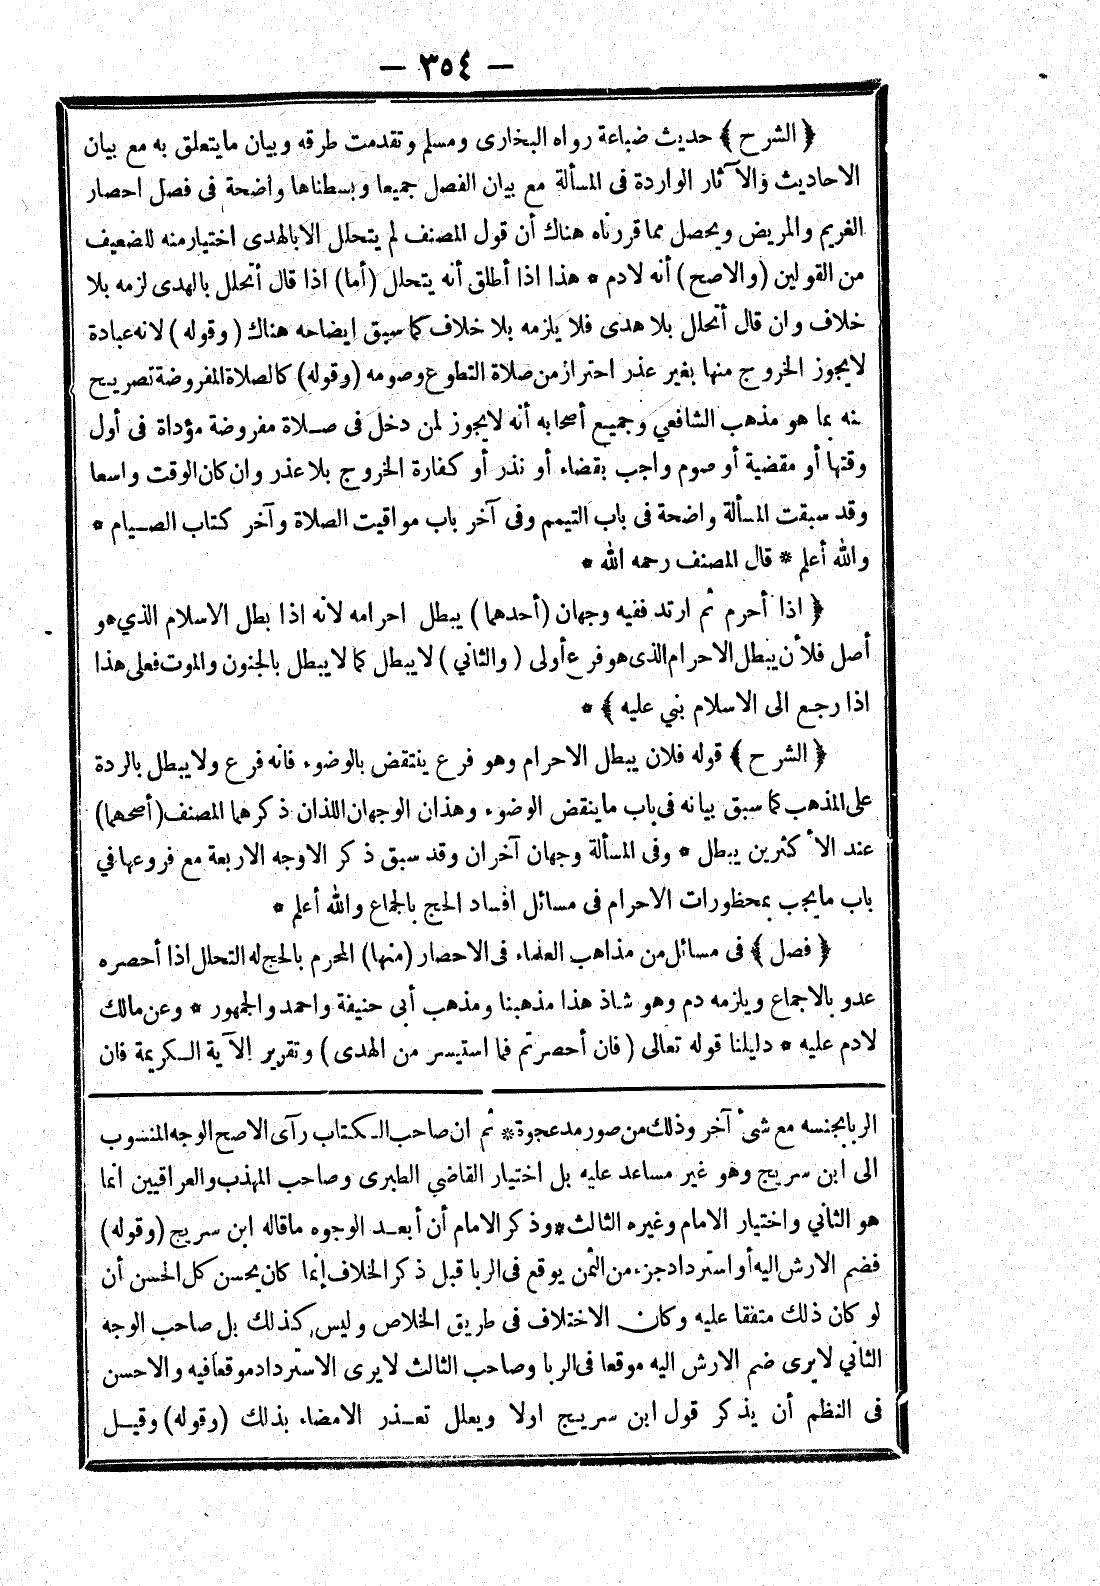 — ٣٥٤ —
﴿ الشرح ﴾ حديث ضباعة رواه البخارى ومسلم وتقدمت طرقه وبيان مايتعلق به مع بيان
الاحاديث والآثار الواردة فى المسألة مع بيان الفصل جميعا وبسطناها واضحة فى فصل احصار
الغريم والمريض ويحصل مما قررناه هناك أن قول المصنف لم يتحلل الابالهدى اختيارمنه للضعيف
من القولين (والاصح) أنه لادم * هذا اذا أطلق أنه يتحلل (أما) اذا قال أتحلل بالهدى لزمه بلا
خلاف وان قال أتحلل بلا هدى فلا يلزمه بلا خلاف كما سبق ايضاحه هناك (وقوله) لانه عبادة
لايجوز الخروج منها بغير عذر احتراز من صلاة التطوع وصومه (وقوله) كالصلاة المفروضة تصريح
منه بما هو مذهب الشافعي وجميع أصحابه أنه لايجوز لمن دخل فى صلاة مفروضة مؤداة فى أول
وقتها أو مقضية أو صوم واجب بقضاء أو نذر أو كفارة الخروج بلا عذر وان كان الوقت واسعا
وقد سبقت المسألة واضحة فى باب التيمم وفى آخر باب مواقيت الصلاة وآخر كتاب الصيام *
والله أعلم * قال المصنف رحمه الله *
﴿ اذا أحرم ثم ارتد ففيه وجهان (أحدهما) يبطل احرامه لانه اذا بطل الاسلام الذي هو
أصل فلأن يبطل الاحرام الذى هو فرع أولى (والثاني) لا يبطل كما لا يبطل بالجنون والموت فعلى هذا
اذا رجع الى الاسلام بني عليه ﴾ *
﴿ الشرح ﴾ قوله فلان يبطل الاحرام وهو فرع ينتقض بالوضوء فانه فرع ولا يبطل بالردة
على المذهب كما سبق بيانه فى باب ماينقض الوضوء وهذان الوجهان اللذان ذكرهما المصنف (أصحهما)
عند الأكثرين يبطل * وفى المسألة وجهان آخران وقد سبق ذكر الاوجه الاربعة مع فروعها في
باب مايجب بمحظورات الاحرام فى مسائل افساد الحج بالجماع والله أعلم *
﴿ فصل ﴾ فى مسائل من مذاهب العلماء فى الاحصار (منها) المحرم بالحج له التحلل اذا أحصره
عدو بالاجماع ويلزمه دم وهو شاذ هذا مذهبنا ومذهب أبى حنيفة واحمد والجمهور * وعن مالك
لادم عليه * دليلنا قوله تعالى (فان أحصرتم فما استيسر من الهدى) وتقرير الآية الكريمة فان
الربا بجنسه مع شئ آخر وذلك من صور مدعجوة * ثم ان صاحب الكتاب رآى الاصح الوجه المنسوب
الى ابن سريج وهو غير مساعد عليه بل اختيار القاضي الطبرى وصاحب المهذب والعراقيين انما
هو الثاني واختيار الامام وغيره الثالث * وذكر الامام أن أبعد الوجوه ماقاله ابن سريج (وقوله)
فضم الارش اليه أو استرداد جزء من الثمن يوقع فى الربا قبل ذكر الخلاف إنما كان يحسن كل الحسن أن
لو كان ذلك متفقا عليه وكان الاختلاف فى طريق الخلاص وليس كذلك بل صاحب الوجه
الثاني لايرى ضم الارش اليه موقعا فى الربا وصاحب الثالث لا يرى الاسترداد موقعا فيه والاحسن
فى النظم أن يذكر قول ابن سريج اولا ويعلل تعذر الامضاء بذلك (وقوله) وقيل